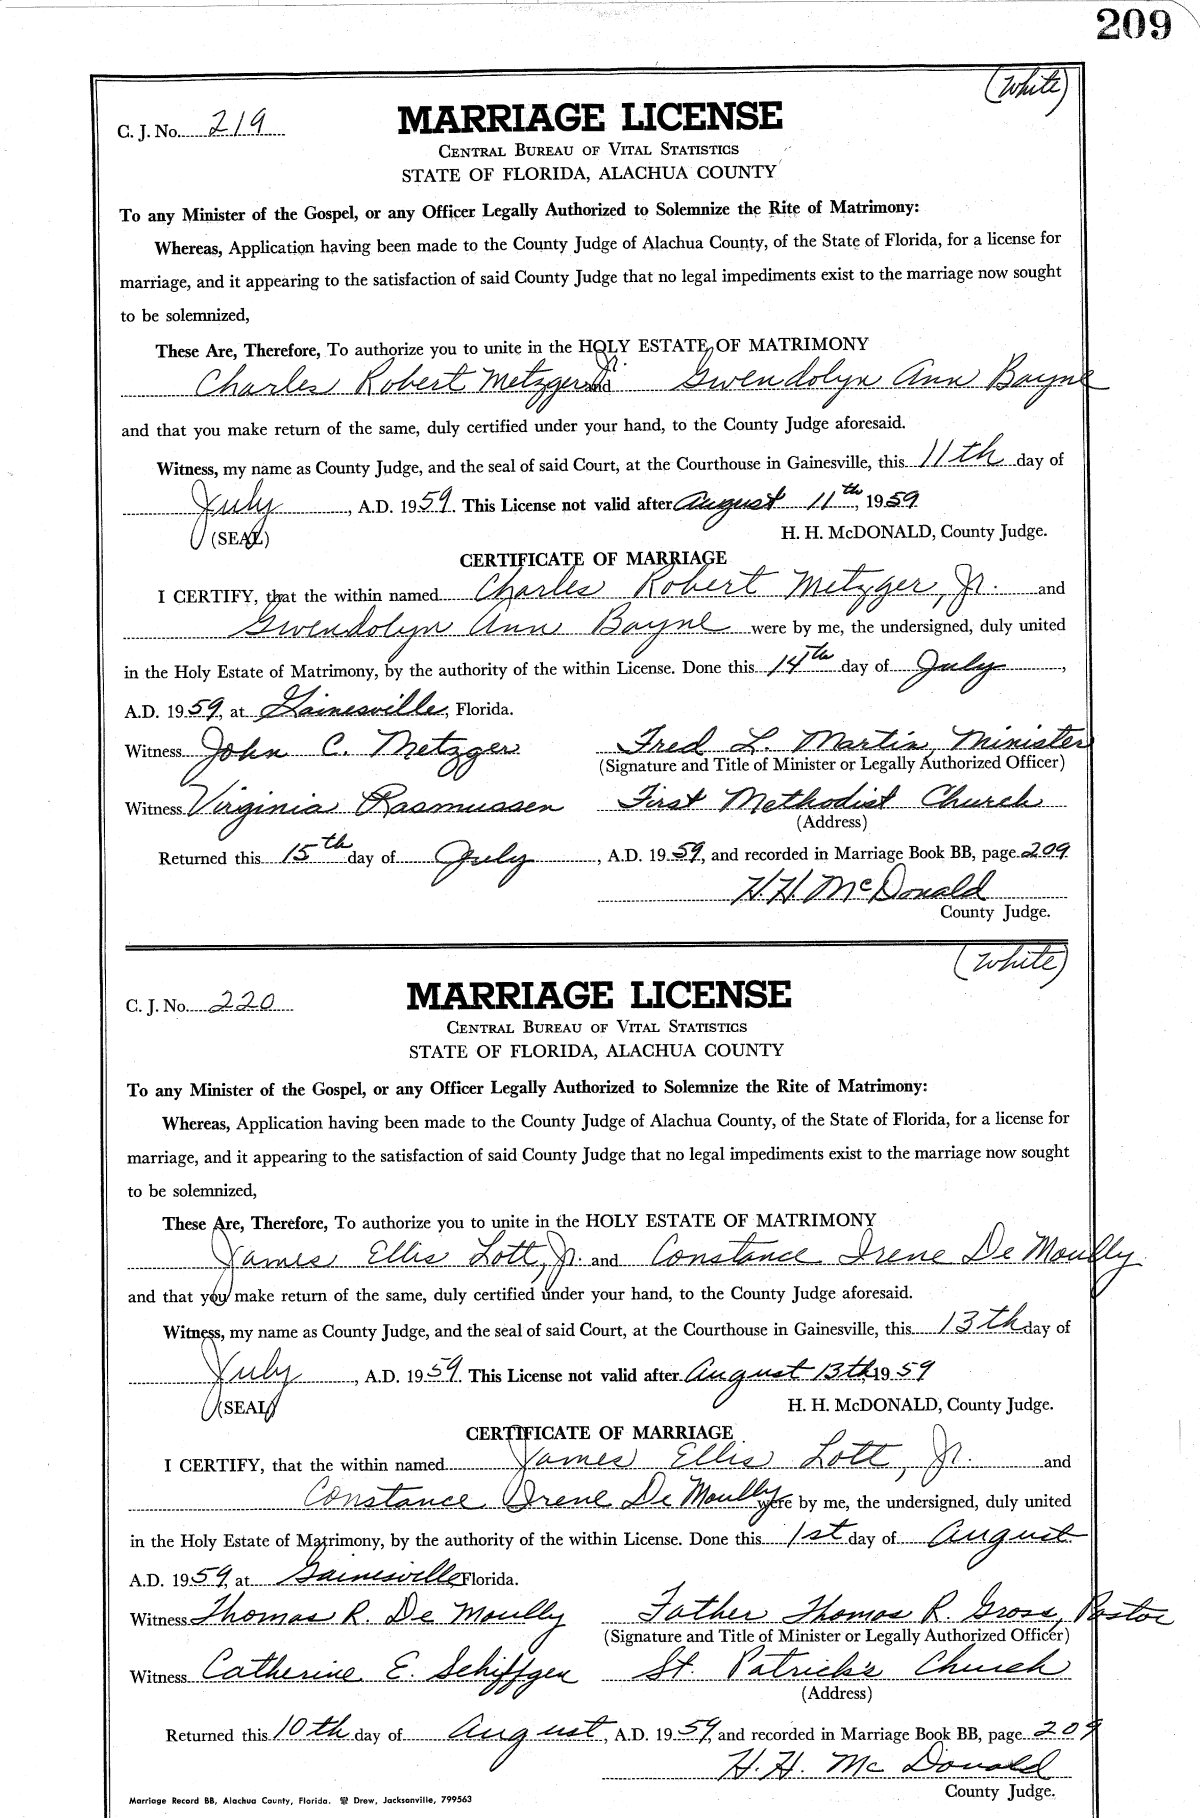 209
(White)
C. J. No. 219
MARRIAGE LICENSE
CENTRAL BUREAU OF VITAL STATISTICS
STATE OF FLORIDA, ALACHUA COUNTY
To any Minister of the Gospel, or any Officer Legally Authorized to Solemnize the Rite of Matrimony:
Whereas, Application having been made to the County Judge of Alachua County, of the State of Florida, for a license for
marriage, and it appearing to the satisfaction of said County Judge that no legal impediments exist to the marriage now sought
to be solemnized,
These Are, Therefore, To authorize you to unite in the HOLY ESTATE OF MATRIMONY
Charles Robert Metzger Jr. and Gwendolyn Ann Bayne
and that you make return of the same, duly certified under your hand, to the County Judge aforesaid.
Witness, my name as County Judge, and the seal of said Court, at the Courthouse in Gainesville, this 11th day of
July, A.D. 1959. This License not valid after August 11th, 1959
(SEAL) H. H. McDONALD, County Judge.
CERTIFICATE OF MARRIAGE
I CERTIFY, that the within named Charles Robert Metzger, Jr. and
Gwendolyn Ann Bayne were by me, the undersigned, duly united
in the Holy Estate of Matrimony, by the authority of the within License. Done this 14th day of July,
A.D. 1959, at Gainesville, Florida.
Witness John C. Metzger Fred L. Martin, Minister
(Signature and Title of Minister or Legally Authorized Officer)
Witness Virginia Rasmussen First Methodist Church
(Address)
Returned this 15th day of July, A.D. 1959, and recorded in Marriage Book BB, page 209
H. H. McDonald
County Judge.
(White)
C. J. No. 220
MARRIAGE LICENSE
CENTRAL BUREAU OF VITAL STATISTICS
STATE OF FLORIDA, ALACHUA COUNTY
To any Minister of the Gospel, or any Officer Legally Authorized to Solemnize the Rite of Matrimony:
Whereas, Application having been made to the County Judge of Alachua County, of the State of Florida, for a license for
marriage, and it appearing to the satisfaction of said County Judge that no legal impediments exist to the marriage now sought
to be solemnized,
These Are, Therefore, To authorize you to unite in the HOLY ESTATE OF MATRIMONY
James Ellis Lott, Jr. and Constance Irene De Moully
and that you make return of the same, duly certified under your hand, to the County Judge aforesaid.
Witness, my name as County Judge, and the seal of said Court, at the Courthouse in Gainesville, this 13th day of
July, A.D. 1959. This License not valid after August 13th, 1959
(SEAL) H. H. McDONALD, County Judge.
CERTIFICATE OF MARRIAGE
I CERTIFY, that the within named James Ellis Lott, Jr. and
Constance Irene De Moully were by me, the undersigned, duly united
in the Holy Estate of Matrimony, by the authority of the within License. Done this 1st day of August
A.D. 1959, at Gainesville, Florida.
Witness Thomas R. De Moully Father Thomas R. Gross, Pastor
(Signature and Title of Minister or Legally Authorized Officer)
Witness Catherine E. Schiffgen St. Patrick's Church
(Address)
Returned this 10th day of August, A.D. 1959, and recorded in Marriage Book BB, page 209
H. H. McDonald
County Judge.
Marriage Record BB, Alachua County, Florida. Drew, Jacksonville, 799563